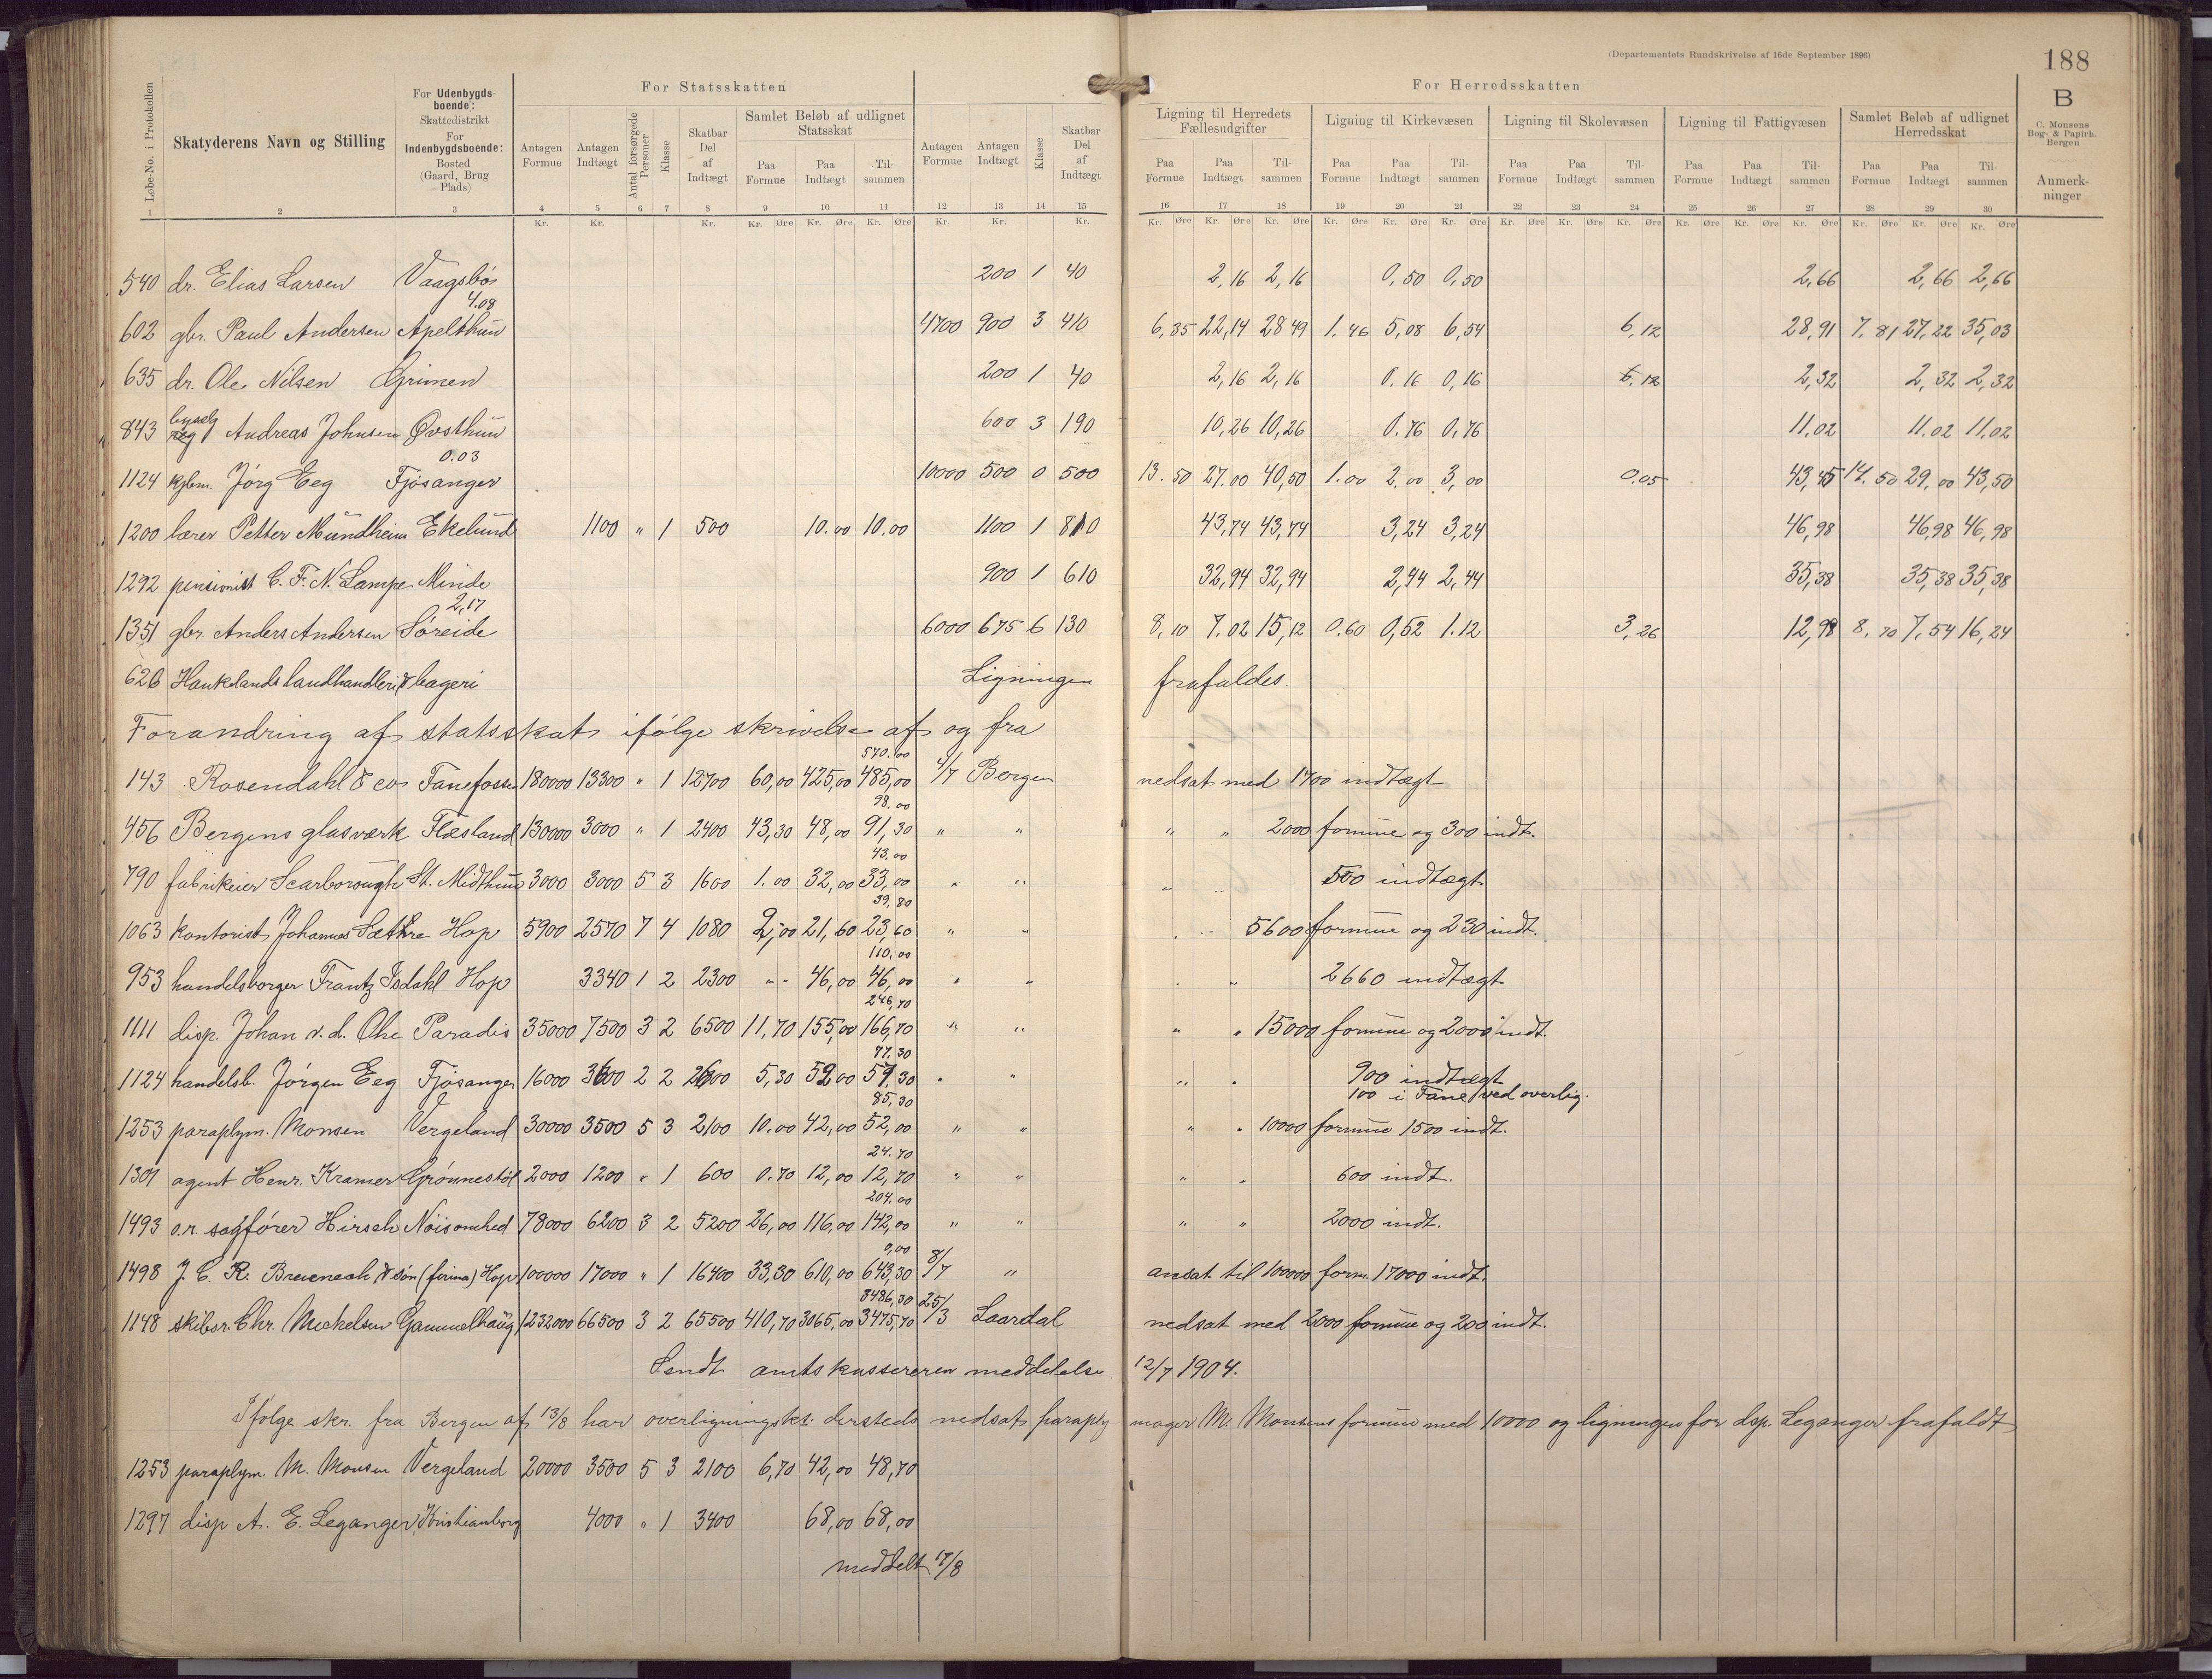 (Departementets Rundskrivelse af 16de September 1896)
188
B
C. Monsens Bog- & Papirh. Bergen
Anmerkninger
For Statsskatten
For Herredsskatten
Løbe-No. i Protokollen
Skatyderens Navn og Stilling
For Udenbygdsboende: Skattedistrikt For Indenbygdsboende: Bosted (Gaard, Brug Plads)
Antagen Formue
Antagen Indtægt
Antal forsørgede Personer
Klasse
Skatbar Del af Indtægt
Samlet Beløb af udlignet Statsskat
Paa Formue Paa Indtægt Tilsammen
Antagen Formue
Antagen Indtægt
Klasse
Skatbar Del af Indtægt
Ligning til Herredets Fællesudgifter
Paa Formue Paa Indtægt Tilsammen
Ligning til Kirkevæsen
Paa Formue Paa Indtægt Tilsammen
Ligning til Skolevæsen
Paa Formue Paa Indtægt Tilsammen
Ligning til Fattigvæsen
Paa Formue Paa Indtægt Tilsammen
Samlet Beløb af udlignet Herredsskat
Paa Formue Paa Indtægt Tilsammen
1 2 3 4 5 6 7 8 9 10 11 12 13 14 15 16 17 18 19 20 21 22 23 24 25 26 27 28 29 30
Kr. Kr. Kr. Kr. Øre Kr. Øre Kr. Øre Kr. Kr. Kr. Kr. Øre Kr. Øre Kr. Øre Kr. Øre Kr. Øre Kr. Øre Kr. Øre Kr. Øre Kr. Øre Kr. Øre Kr. Øre Kr. Øre Kr. Øre Kr. Øre Kr. Øre
540 dr. Elias Larsen Vaagsbø 200 1 40 2,16 2,16 0,50 0,50 2,66 2,66 2,66
4.08
602 gbr. Paul Andersen Apelthun 4700 900 3 410 6,35 22,14 28 49 1.46 5,08 6,54 6,12 28,91 7.81 27,22 35,03
635 dr. Ole Nilsen Grimen 200 1 40 2,16 2,16 0.16 0,16 6.12 2,32 2,32 2,32
843 Andreas Johnsen Øvsthun 600 3 190 10,26 10,26 0.76 0,76 11.02 11.02 11,02
0.03
1124 kjbm. Jörg Eeg Fjøsanger 10000 500 0 500 13.50 27.00 40,50 1.00 2.00 3,00 0.05 43,45 14.50 29,00 43,50
1200 lærer Petter Mundheim Ekelund 1100 " 1 500 10.00 10.00 1100 1 810 43,74 43,74 3,24 3,24 46,98 46,98 46,98
1292 pensionist C. F. N. Lampe Minde 900 1 610 32,94 32,94 2,44 2,44 35,38 35,38 35,38
2,17
1351 gbr. Anders Andersen Søreide 6000 675 6 130 8,10 7.02 15,12 0.60 0,52 1.12 3,26 12,98 8,70 7,54 16,24
626 Hauklands landhandleri & bageri Ligningen frafaldes.
Forandring af statsskat ifølge skrivelse af og fra
570.00
143 Rosendahl & co Fanefossen 180000 13300 " 1 12700 60,00 425,00 485,00 4/7 Bergen nedsat med 1700 indtægt
98.00
456 Bergens glasværk Flesland 130000 3000 " 1 2400 43,30 48,00 91,30 " " " " 2000 formue og 300 indt.
43.00
790 fabrikeier Scarborough St. Midthun 3000 3000 5 3 1600 1.00 32,00 33,00 " " " " 550 indtægt
39,80
1063 kontorist Johannes Sæthre Hop 5900 2570 7 4 1080 2,00 21,60 23,60 " " " " 5600 formue og 230 indt.
110,00
953 handelsborger Frantz Isdahl Hop 3340 1 2 2300 " " 46,00 46,00 " " " " 2660 indtægt
246,70
1111 disp. Johan v. d. Ohe Paradis 35000 7500 3 2 6500 11,70 155,00 166,70 " " " " 15000 formue og 2000 indt.
77.30
1124 handelsb. Jörgen Eeg Fjøsanger 16000 3600 2 2 2600 5,30 52,00 57,30 " " " " 900 indtægt
100 i Fane ved overlig.
85,30
1253 paraplym. Monsen Vergeland 30000 3500 5 3 2100 10.00 42,00 52,00 " " " " 10000 formue 1500 indt.
24.70
1301 agent Henr. Kramer Grønnestøl 2000 1200 " 1 600 0.70 12,00 12,70 " " " " 600 indt.
204.00
1493 o.r. sagfører Hirsch Nøisomhed 78000 6200 3 2 5200 26,00 116,00 142,00 " " " " 2000 indt.
0,00
1498 J. C. K. & søn (firma) Hop 100000 17000 " 1 16400 33,30 610,00 643,30 8/7 " ansat til 100000 form. 17000 indt.
3486,30
1148 skibsr. Chr. Michelsen Gammelhaug 1232000 66500 3 2 65500 410,70 3065,00 3475,70 25/3 Laardal nedsat med 2000 formue og 200 indt.
Sendt amtskassereren meddelelse 12/7 1904.
Ifølge skr. fra Bergen af 13/8 har overligningsk. dersteds nedsat paraply mager M. Monsens formue med 10000 og ligningen for dsp. Leganger frafaldt
1253 paraplym. M. Monsen Vergeland 20000 3500 5 3 2100 6,70 42,00 48,70
1297 disp A. E. Leganger Kristianborg 4000 " 1 3400 68,00 68,00
meddelt 17/8